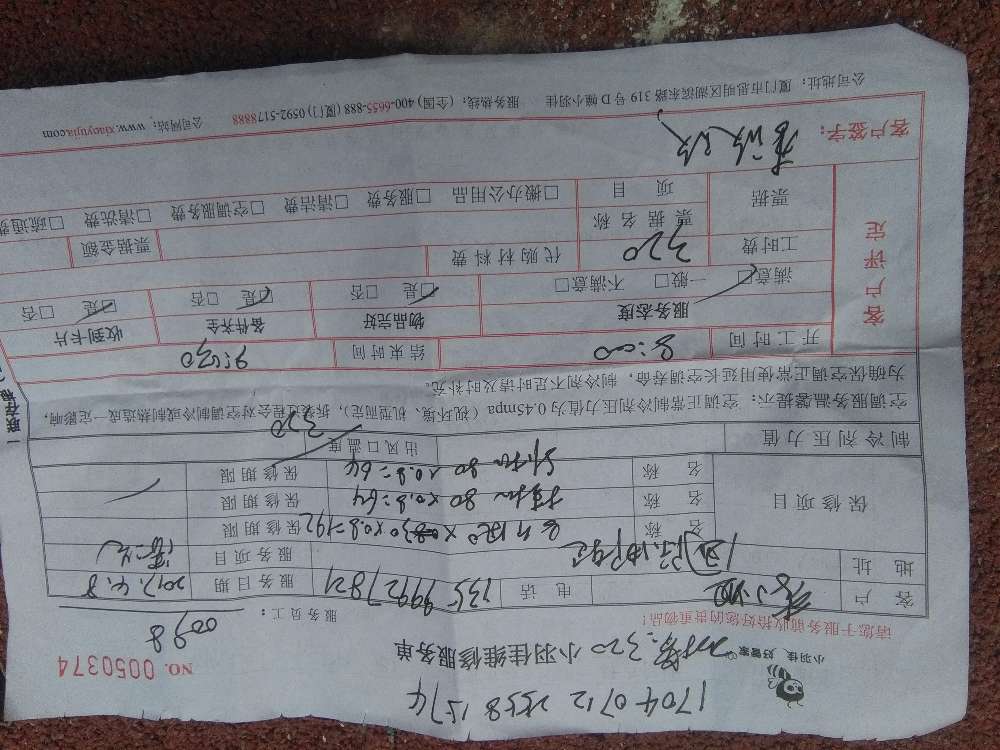 1704 0712 2558 1574
小羽佳，好管家
320 小羽佳维修服务单
NO. 0050374
请您于服务前收拾好您的贵重物品！
服务员工：0098
客户 电话 135 99927821 服务日期 2017.4.8
地址 服务项目
保修项目 名称 保修期限
名称 80×0.8=64 保修期限
名称 80×0.8=64 保修期限
制冷剂压力值 出风口温度 320
空调服务温馨提示：空调正常制冷剂压力值为0.45mpa（视环境、机型而定），拆装过程会对空调制冷或制热造成一定影响，
为确保空调正常使用延长空调寿命，制冷剂不足时请及时补充。
开工时间 8:00 结束时间 9:30
客户评定
服务态度 物品完好 备件齐全 收到卡片
满意□ 一般□ 不满意□ □是 □否 □是 □否 □是 □否
工时费 320 代购材料费
票据 票据名称 票据金额
项目 □搬办公用品 □服务费 □清洁费 □空调服务费 □清洗费 □疏通费
客户签字：
公司地址：厦门市思明区湖滨东路319号D幢小羽佳 服务热线：（全国）400-6655-888（厦门）0592-5178888 公司网站：www.xiaoyujia.com